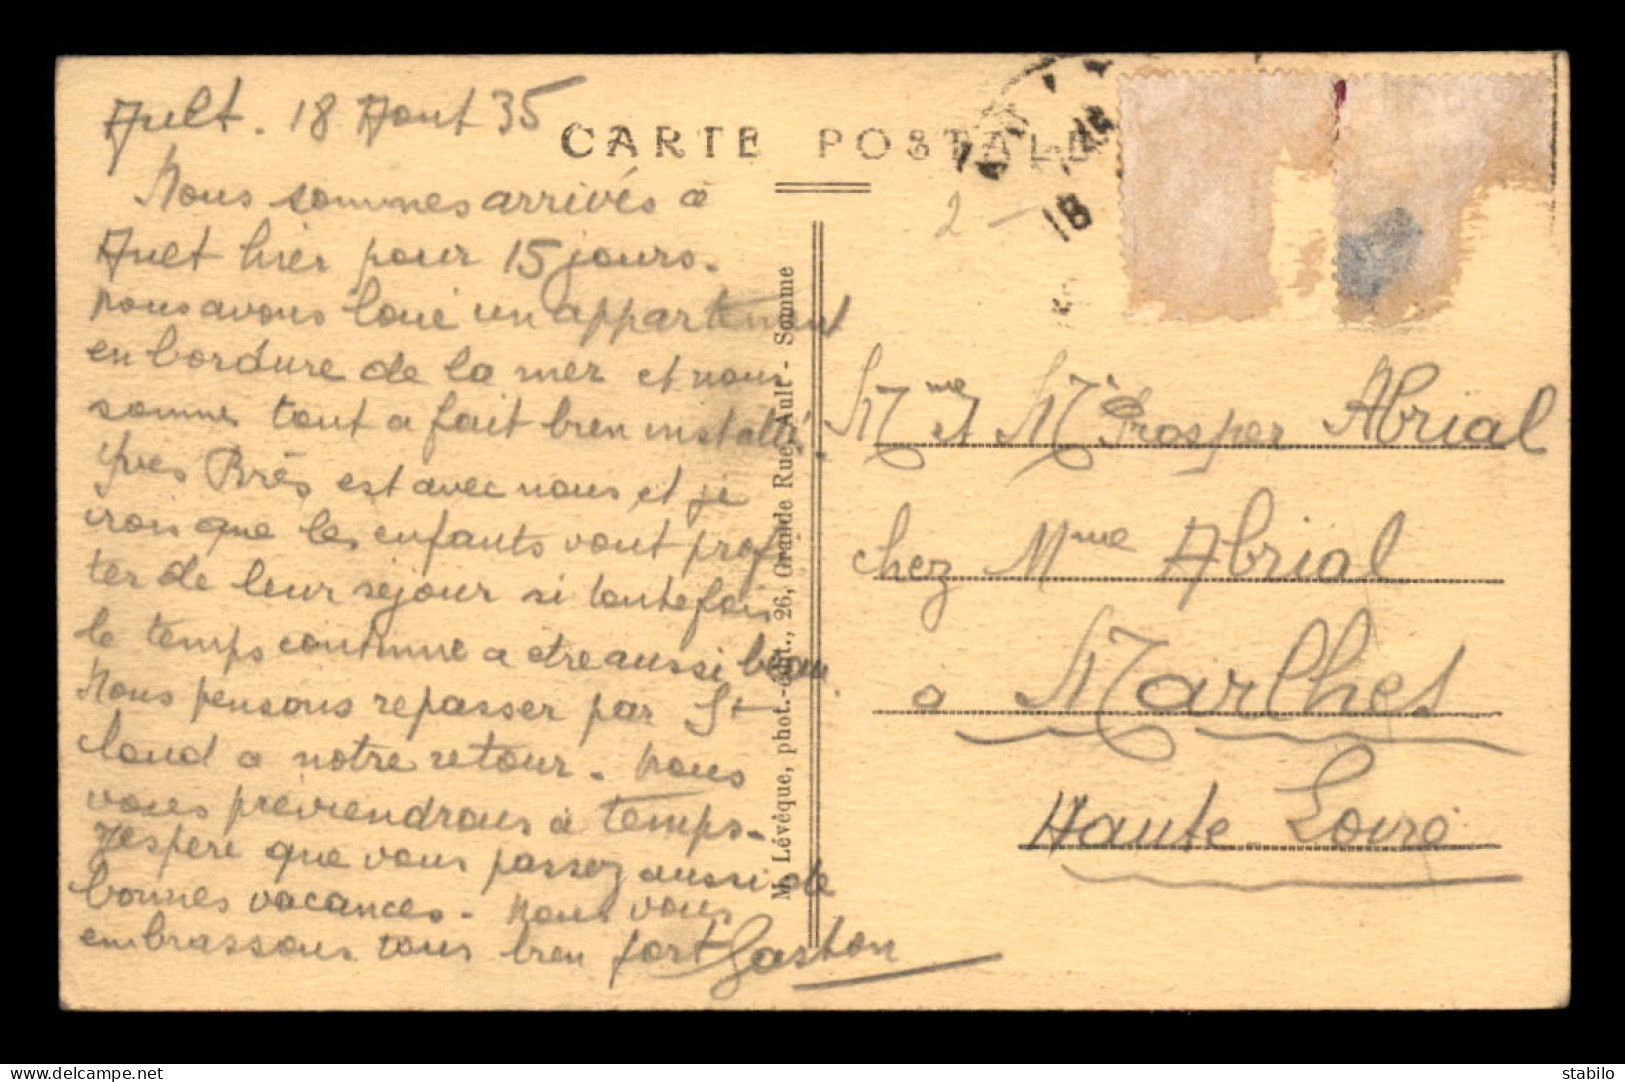 Ault. 18 Aout 35
CARTE POSTALE
Nous sommes arrivés à
Ault hier pour 15 jours.
nous avons loué un appartement
en bordure de la mer et nous
sommes tout a fait bien installés.
Yves Brès est avec nous et je
crois que les enfants vont profi
ter de leur séjour si toutefois
le temps continue a etre aussi beau.
Nous pensons repasser par St
Cloud a notre retour. Nous
vous préviendrons à temps.
J'espère que vous passez aussi de
bonnes vacances. Nous vous
embrassons tous bien fort Gaston
M. Lévêque, phot.-édit., 26, Grande Rue, Ault - Somme
2 -
18
Mme et Mr Prosper Abrial
chez Mme Abrial
a Marlhes
Haute Loire
www.delcampe.net
stabilo